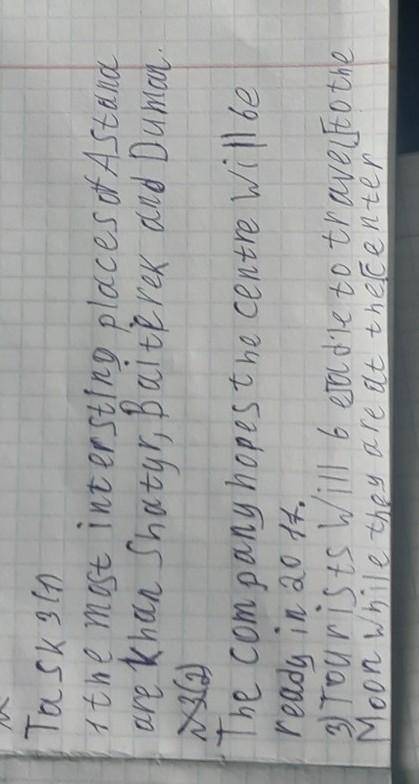 Task 3(1)
1 the most intersting places of Astana
are Khan Shatyr, Baiterex and Duman.
№3(2)
The company hopes the centre will be
ready in 2017.
3) Tourists will be able to travel to the
Moon while they are at the Center